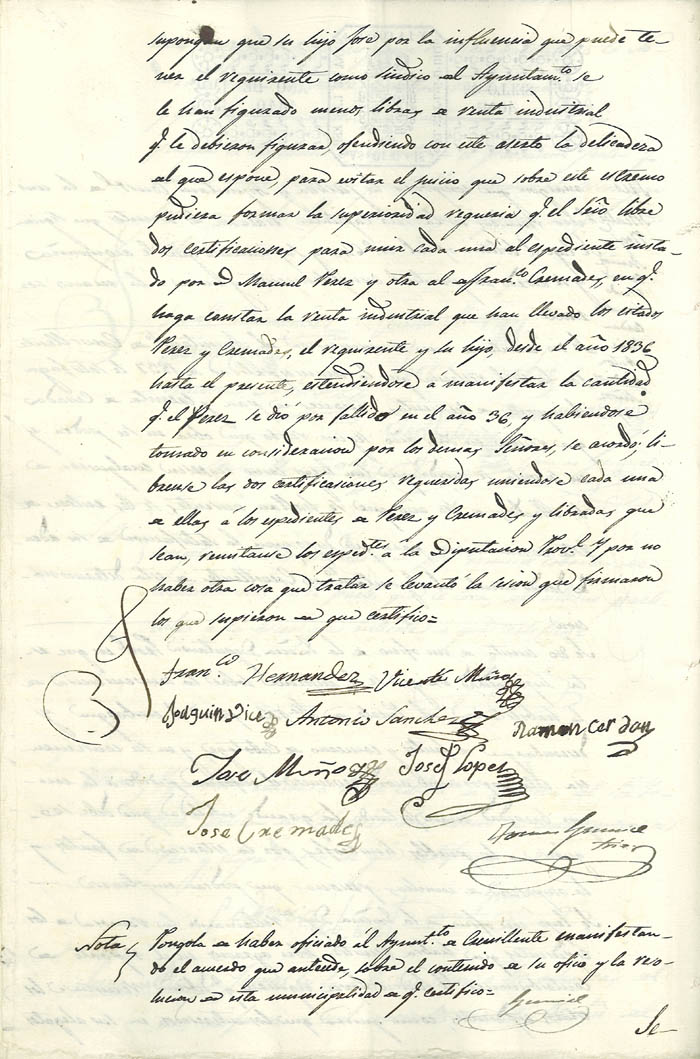 supongan que su hijo Jose por la influencia que puede te-
ner el requirente como Sindico del Ayuntam.to se
le han figurado menos libras de renta industrial
q.e le debieron figurar, ofendiendo con este aserto la delicadeza
del que espone, para evitar el juicio que sobre este estremo
pudiera formar la superioridad requeria q.e el Srio libre
dos certificaciones para unir cada una al espediente insta-
do por D Manuel Perez y otra al de Fran.co Cremades, en q.e
haga constar la renta industrial que han llevado los citados
Perez y Cremades, el requirente y su hijo, desde el año 1836
hasta el presente, estendiendose á manifestar la cantidad
q.e el Perez se dió por fallido en el año 36, y habiendose
tomado en consideracion por los demas Señores, se acordó; li-
brense las dos certificaciones requeridas uniendose cada una
de ellas á los espedientes de Perez y Cremades y libradas que
sean, remitanse los esped.tes á la Diputacion Prov.l Y por no
haber otra cosa que tratar se levantó la sesion que firmaron
los que supieron de que certifico=
Fran.co Hernandez Vicente Muño
Joaquin Vice Antonio Sanchez Ramon Cerdan
Jose Muño Josef Lopez
Jose Cremades
Nota Pongola de haber oficiado al Ayunt.to de Crevillente manifestan-
do el acuerdo que antecede, sobre el contenido de su oficio y la reso-
lucion de esta municipalidad de q.e certifico=
Se-